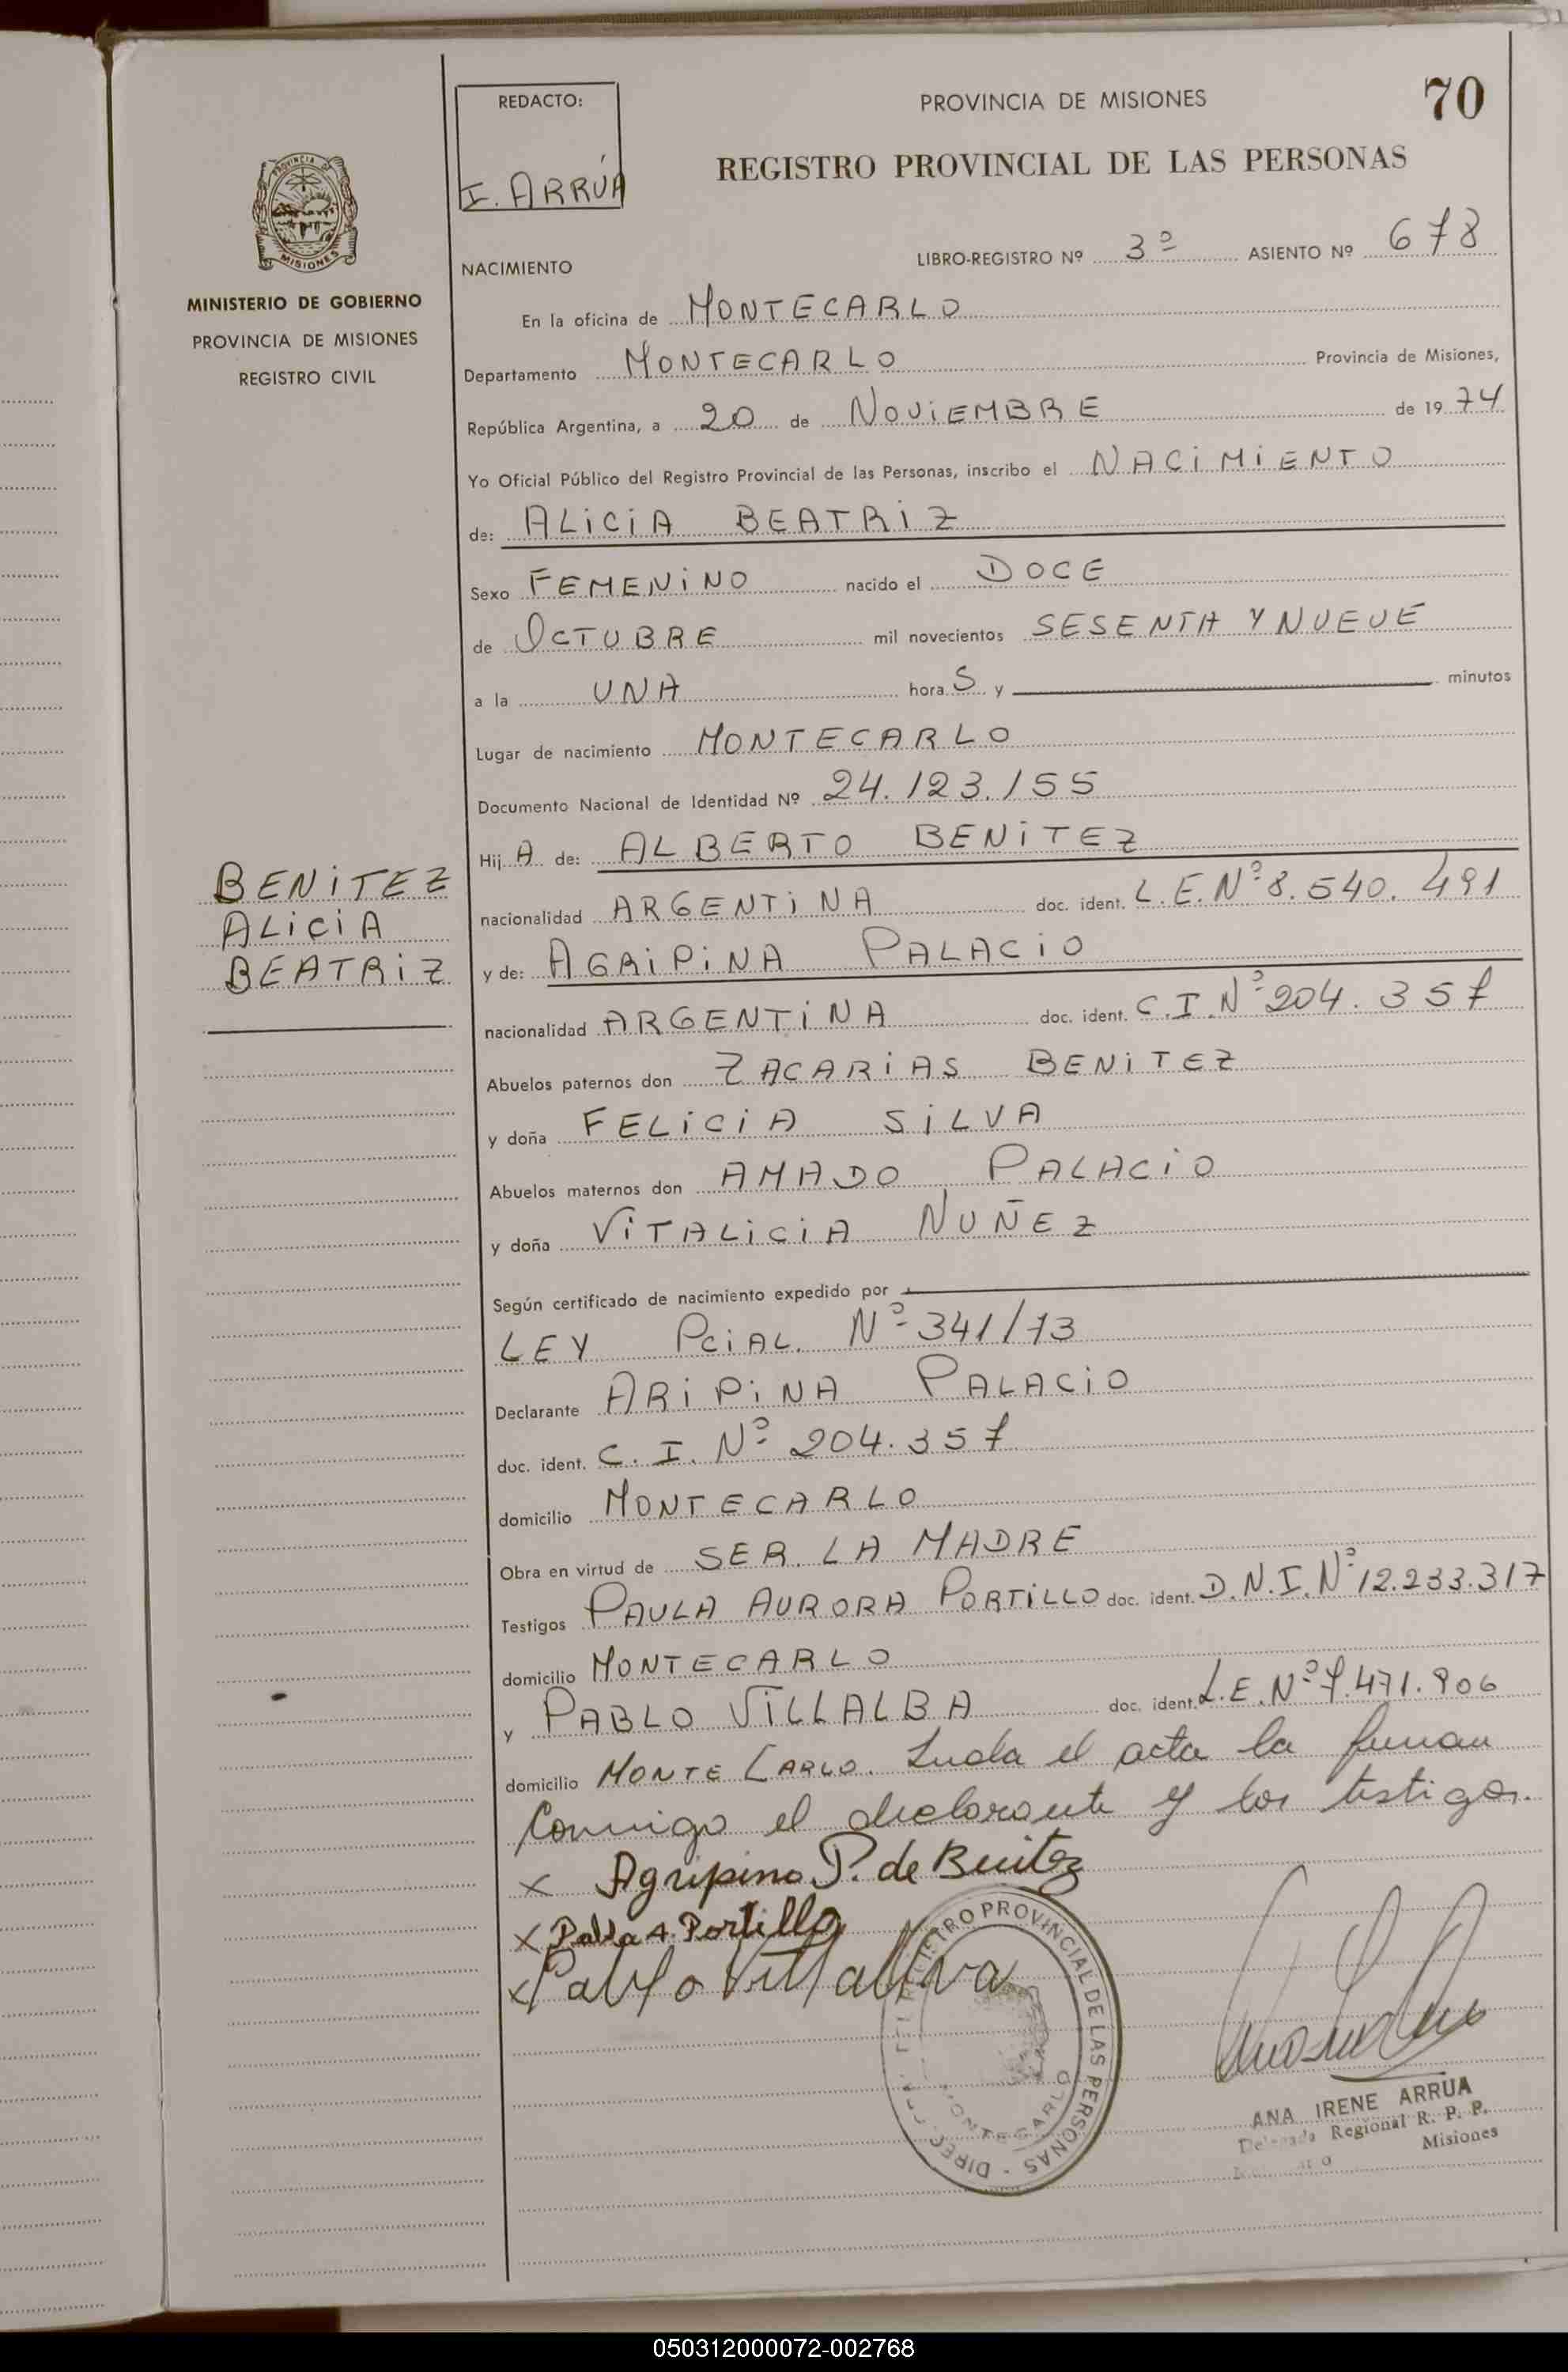 REDACTO:
I. ARRÚA
PROVINCIA DE MISIONES
70
REGISTRO PROVINCIAL DE LAS PERSONAS
PROVINCIA
MISIONES
MINISTERIO DE GOBIERNO
PROVINCIA DE MISIONES
REGISTRO CIVIL
NACIMIENTO
LIBRO-REGISTRO Nº 3º ASIENTO Nº 678
En la oficina de MONTECARLO
Departamento MONTECARLO Provincia de Misiones,
República Argentina, a 20 de NOVIEMBRE de 1974
Yo Oficial Público del Registro Provincial de las Personas, inscribo el NACIMIENTO
de: ALICIA BEATRIZ
Sexo FEMENINO nacido el DOCE
de OCTUBRE mil novecientos SESENTA Y NUEVE
a la UNA hora S y minutos
Lugar de nacimiento MONTECARLO
Documento Nacional de Identidad Nº 24.123.155
Hij A de: ALBERTO BENITEZ
BENITEZ
ALICIA
BEATRIZ
nacionalidad ARGENTINA doc. ident. L.E.Nº 8.540.491
y de: AGRIPINA PALACIO
nacionalidad ARGENTINA doc. ident. C.I.Nº 204.357
Abuelos paternos don ZACARIAS BENITEZ
y doña FELICIA SILVA
Abuelos maternos don AMADO PALACIO
y doña VITALICIA NUÑEZ
Según certificado de nacimiento expedido por
LEY PCIAL. Nº 341/73
Declarante ARIPINA PALACIO
doc. ident. C.I. Nº 204.357
domicilio MONTECARLO
Obra en virtud de SER LA MADRE
Testigos PAULA AURORA PORTILLO doc. ident. D.N.I.Nº 12.233.317
domicilio MONTECARLO
y PABLO VILLALBA doc. ident. L.E.Nº 7.471.906
domicilio MONTE CARLO. Leida el acta la firman
Conmigo el declarante y los testigos.
x Agripina P. de Benitez
x Paula A. Portillo
x Pablo Villalva
REGISTRO PROVINCIAL DE LAS PERSONAS - DIREC.
MONTECARLO
ANA IRENE ARRUA
Delegada Regional R. P. P.
Misiones
050312000072-002768